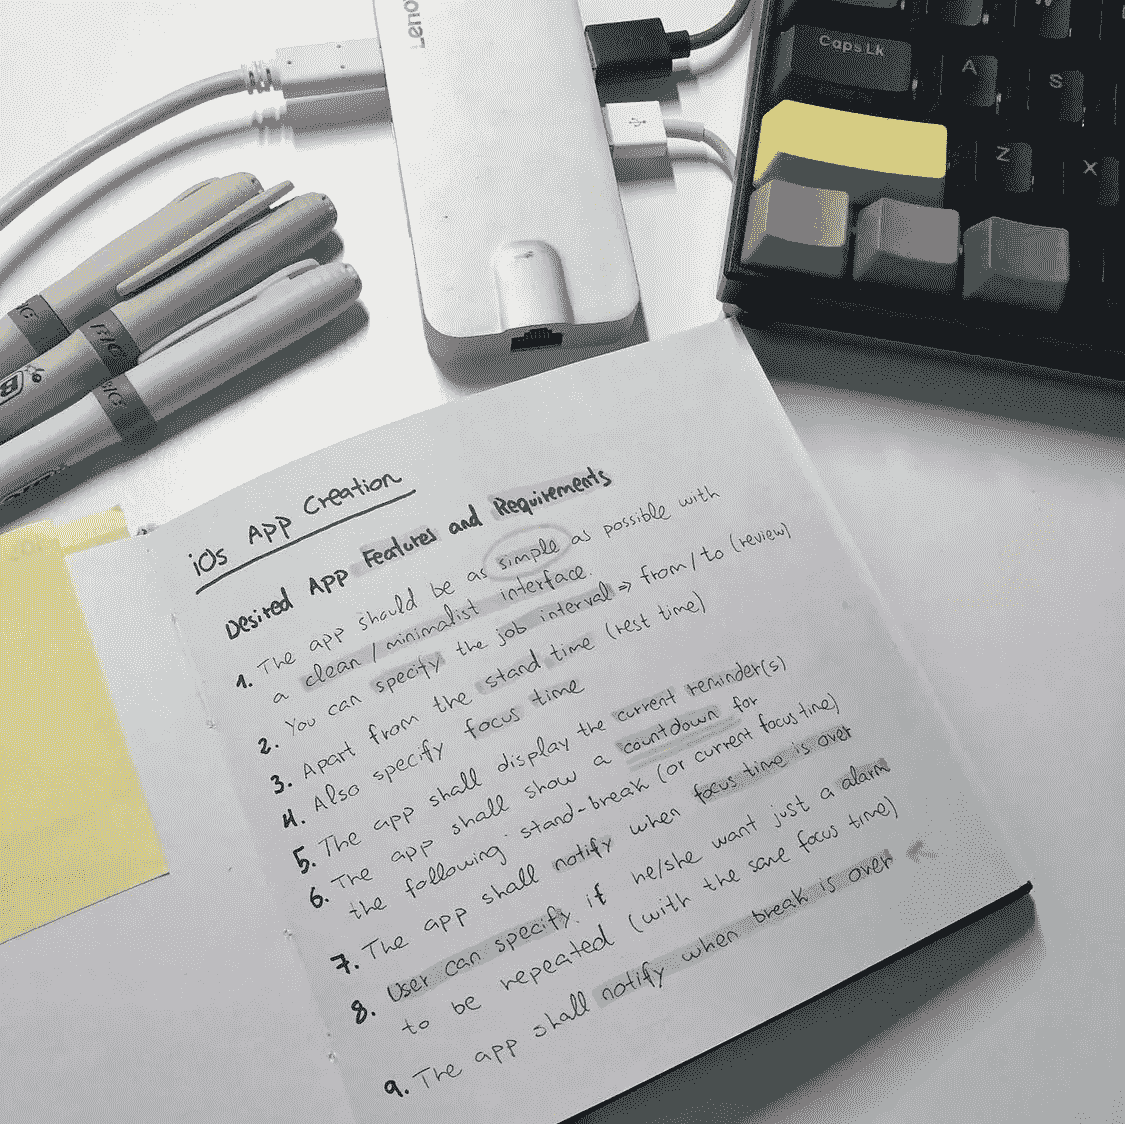 Leno
Caps Lk
A
S
Z
X
BIC
BIC
iOs App Creation
Desired App Features and Requirements
1. The app should be as simple as possible with
a clean / minimalist interface.
2. You can specify the job interval => from / to (review)
3. Apart from the stand time (rest time)
4. Also specify focus time
5. The app shall display the current reminder(s)
6. The app shall show a countdown for
the following stand-break (or current focus time)
7. The app shall notify when focus time is over
8. User can specify if he/she want just a alarm
to be repeated (with the same focus time)
9. The app shall notify when break is over ←